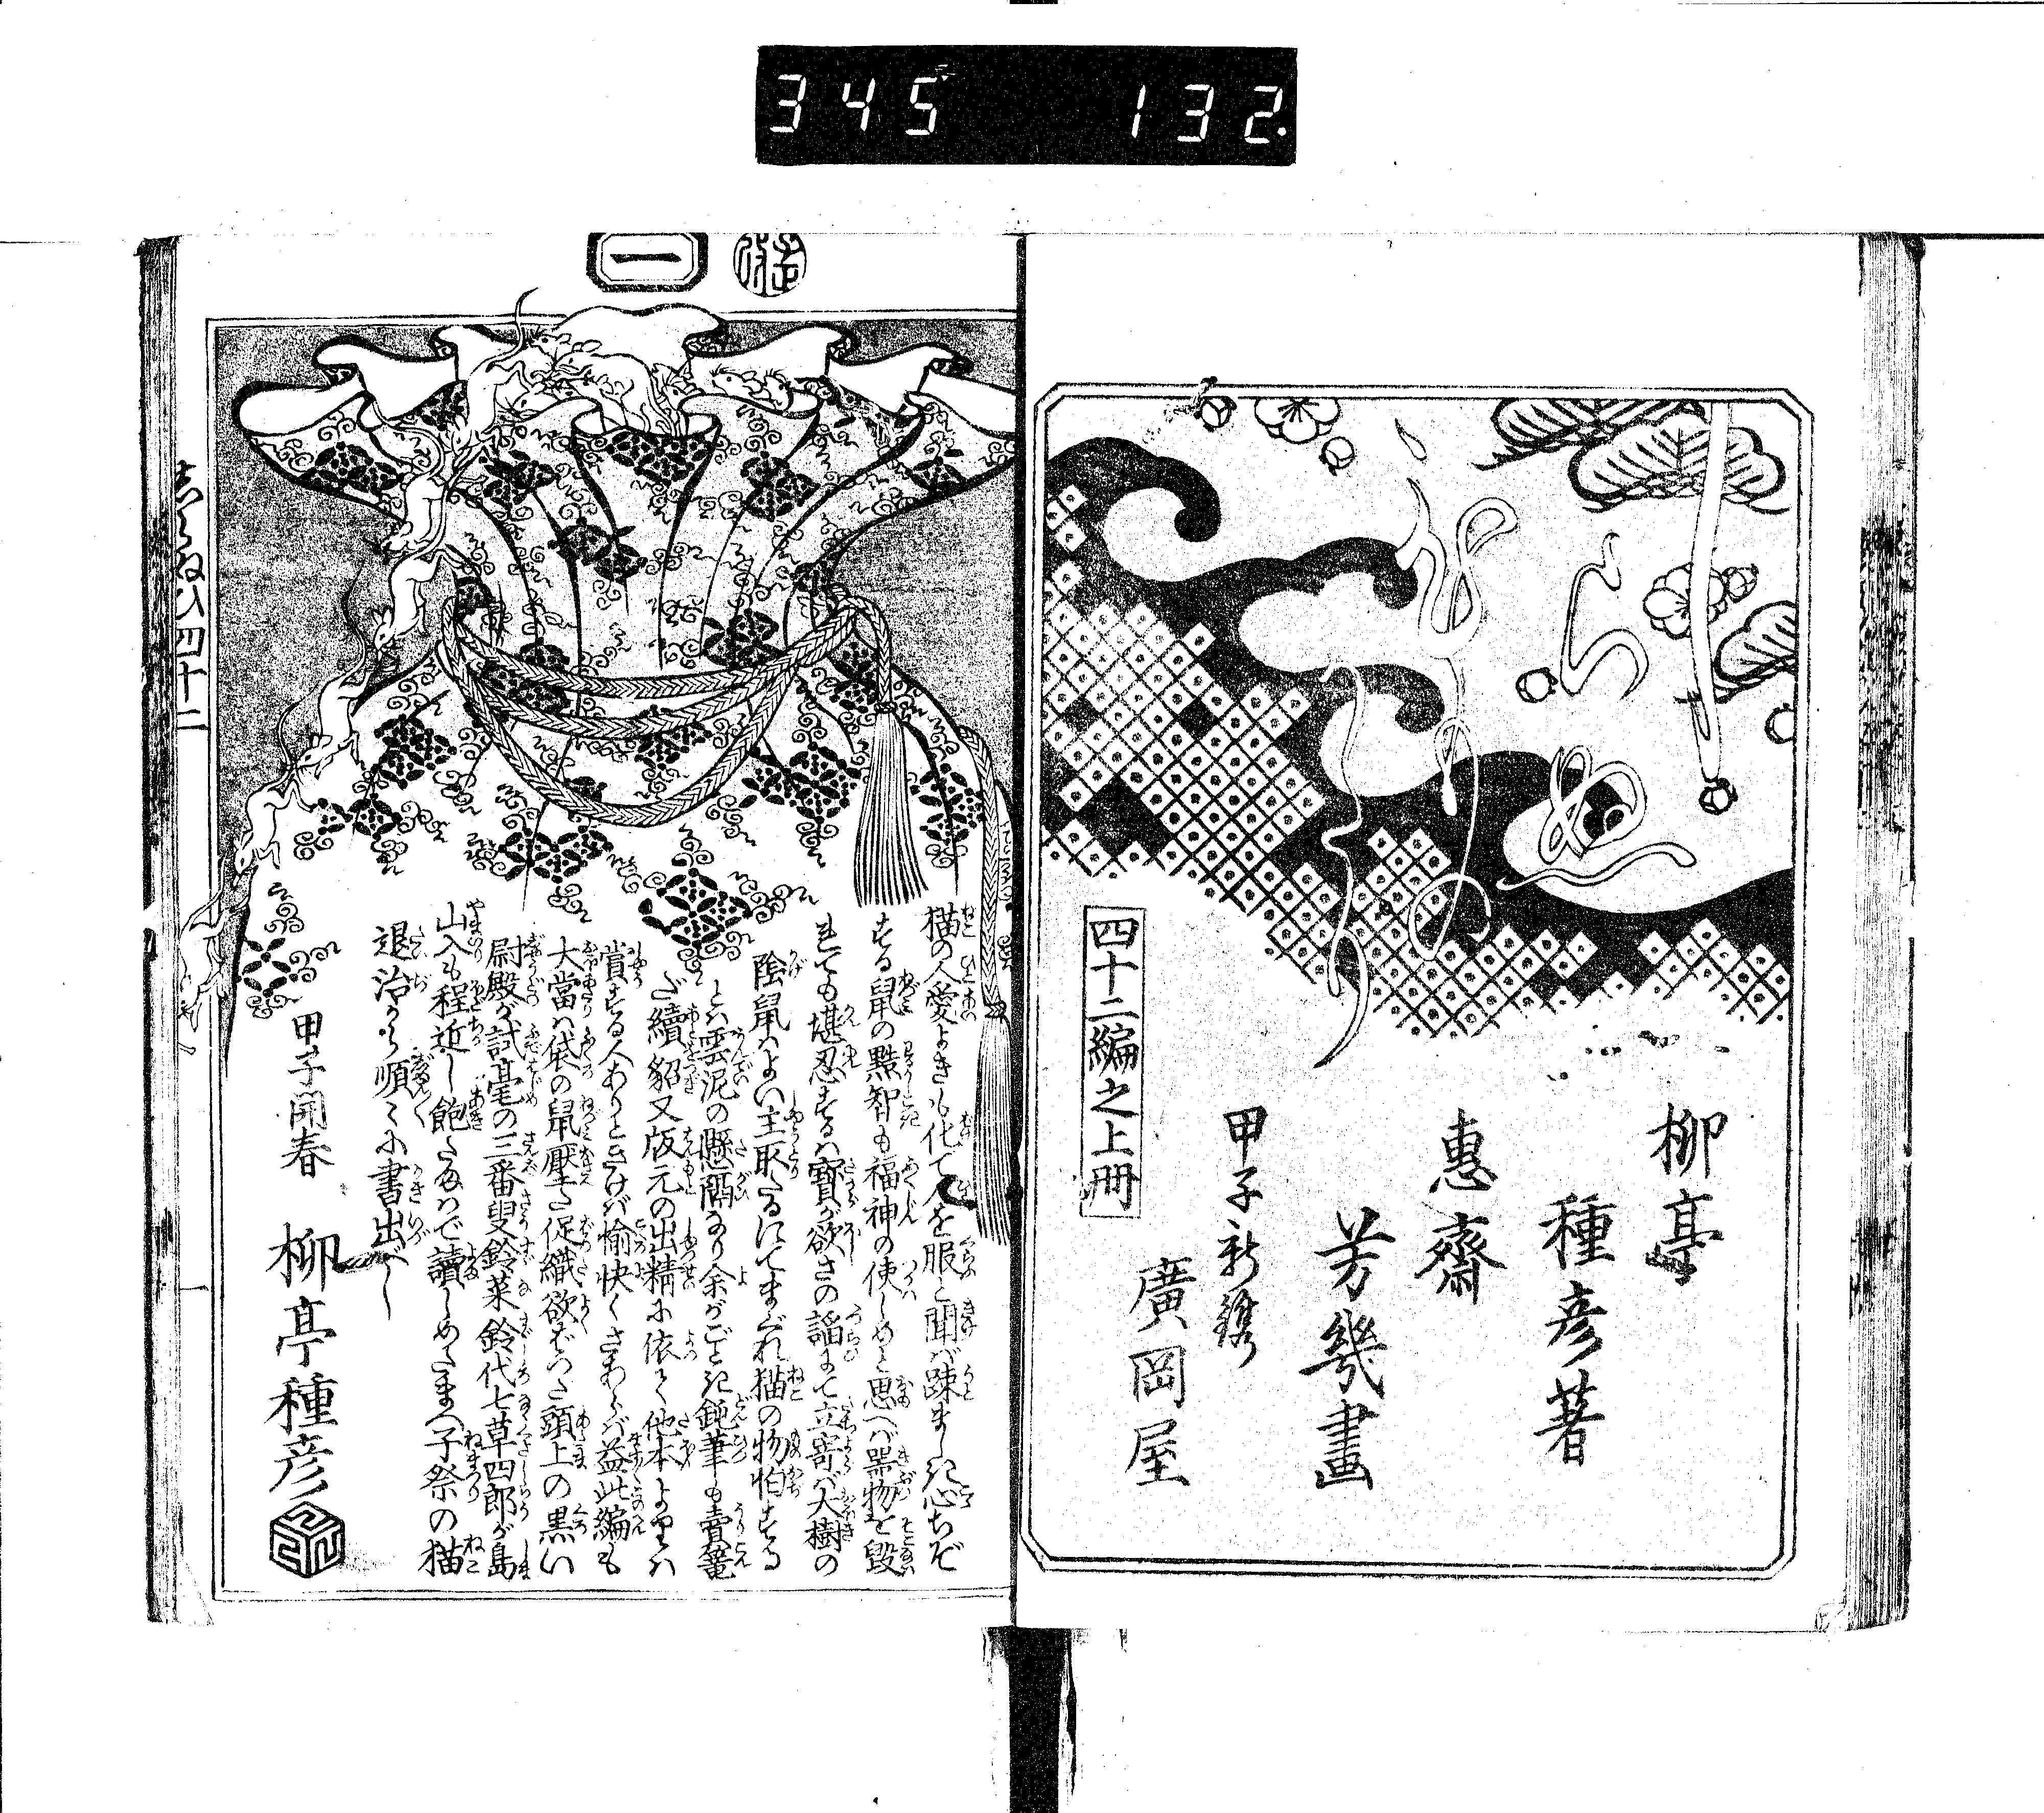 345 132
しらぬひ
ものがたり
四十二編之上冊
柳亭
種彦著
惠齋
芳幾畫
甲子新鐫
廣岡屋
一
猫の人愛よきも化て人を服と聞ば踈ましき心ちぞ
する鼠の黠智も福神の使しめと思へば器物を毀
れても堪忍するは寶が欲さの謡にて立寄ば大樹の
陰鼠はよい主取たるにてまぐれ猫の物怕する
とは雲泥の懸隔なり余がごとき鈍筆も賣簍
ざ續貂又版元の出精に依て他本よりは
賞する人ありときけば愉快くさあらば益此編も
大當は俵の鼠壓た促織欲ぞつた頭上の黒い
尉殿が試毫の三番叟鈴菜鈴代七草四郎が島
山入も程近し飽たまはで讀しめたまへ子祭の猫
退治から順々に書出べし
甲子開春
柳亭種彦
志らぬひ四十二
一